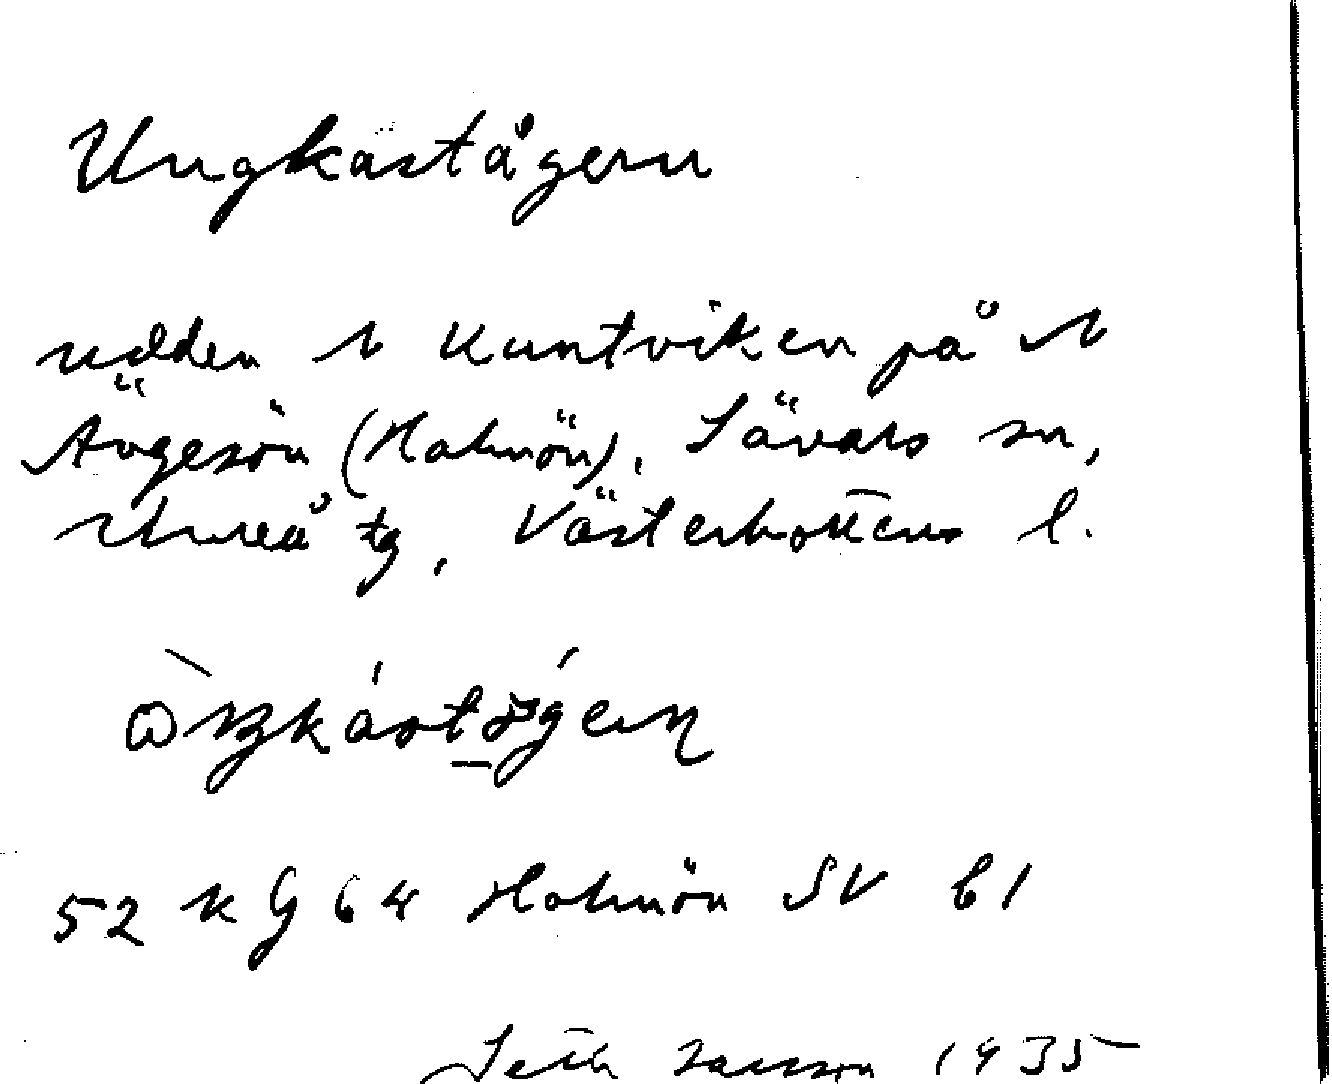 Ungkastågern
udden N Kuntviken på N
Ängesön (Holmön), Sävars sn,
Umeå tg, Västerbottens l.
52 K G 64 Holmön SV b1
Seth 1935